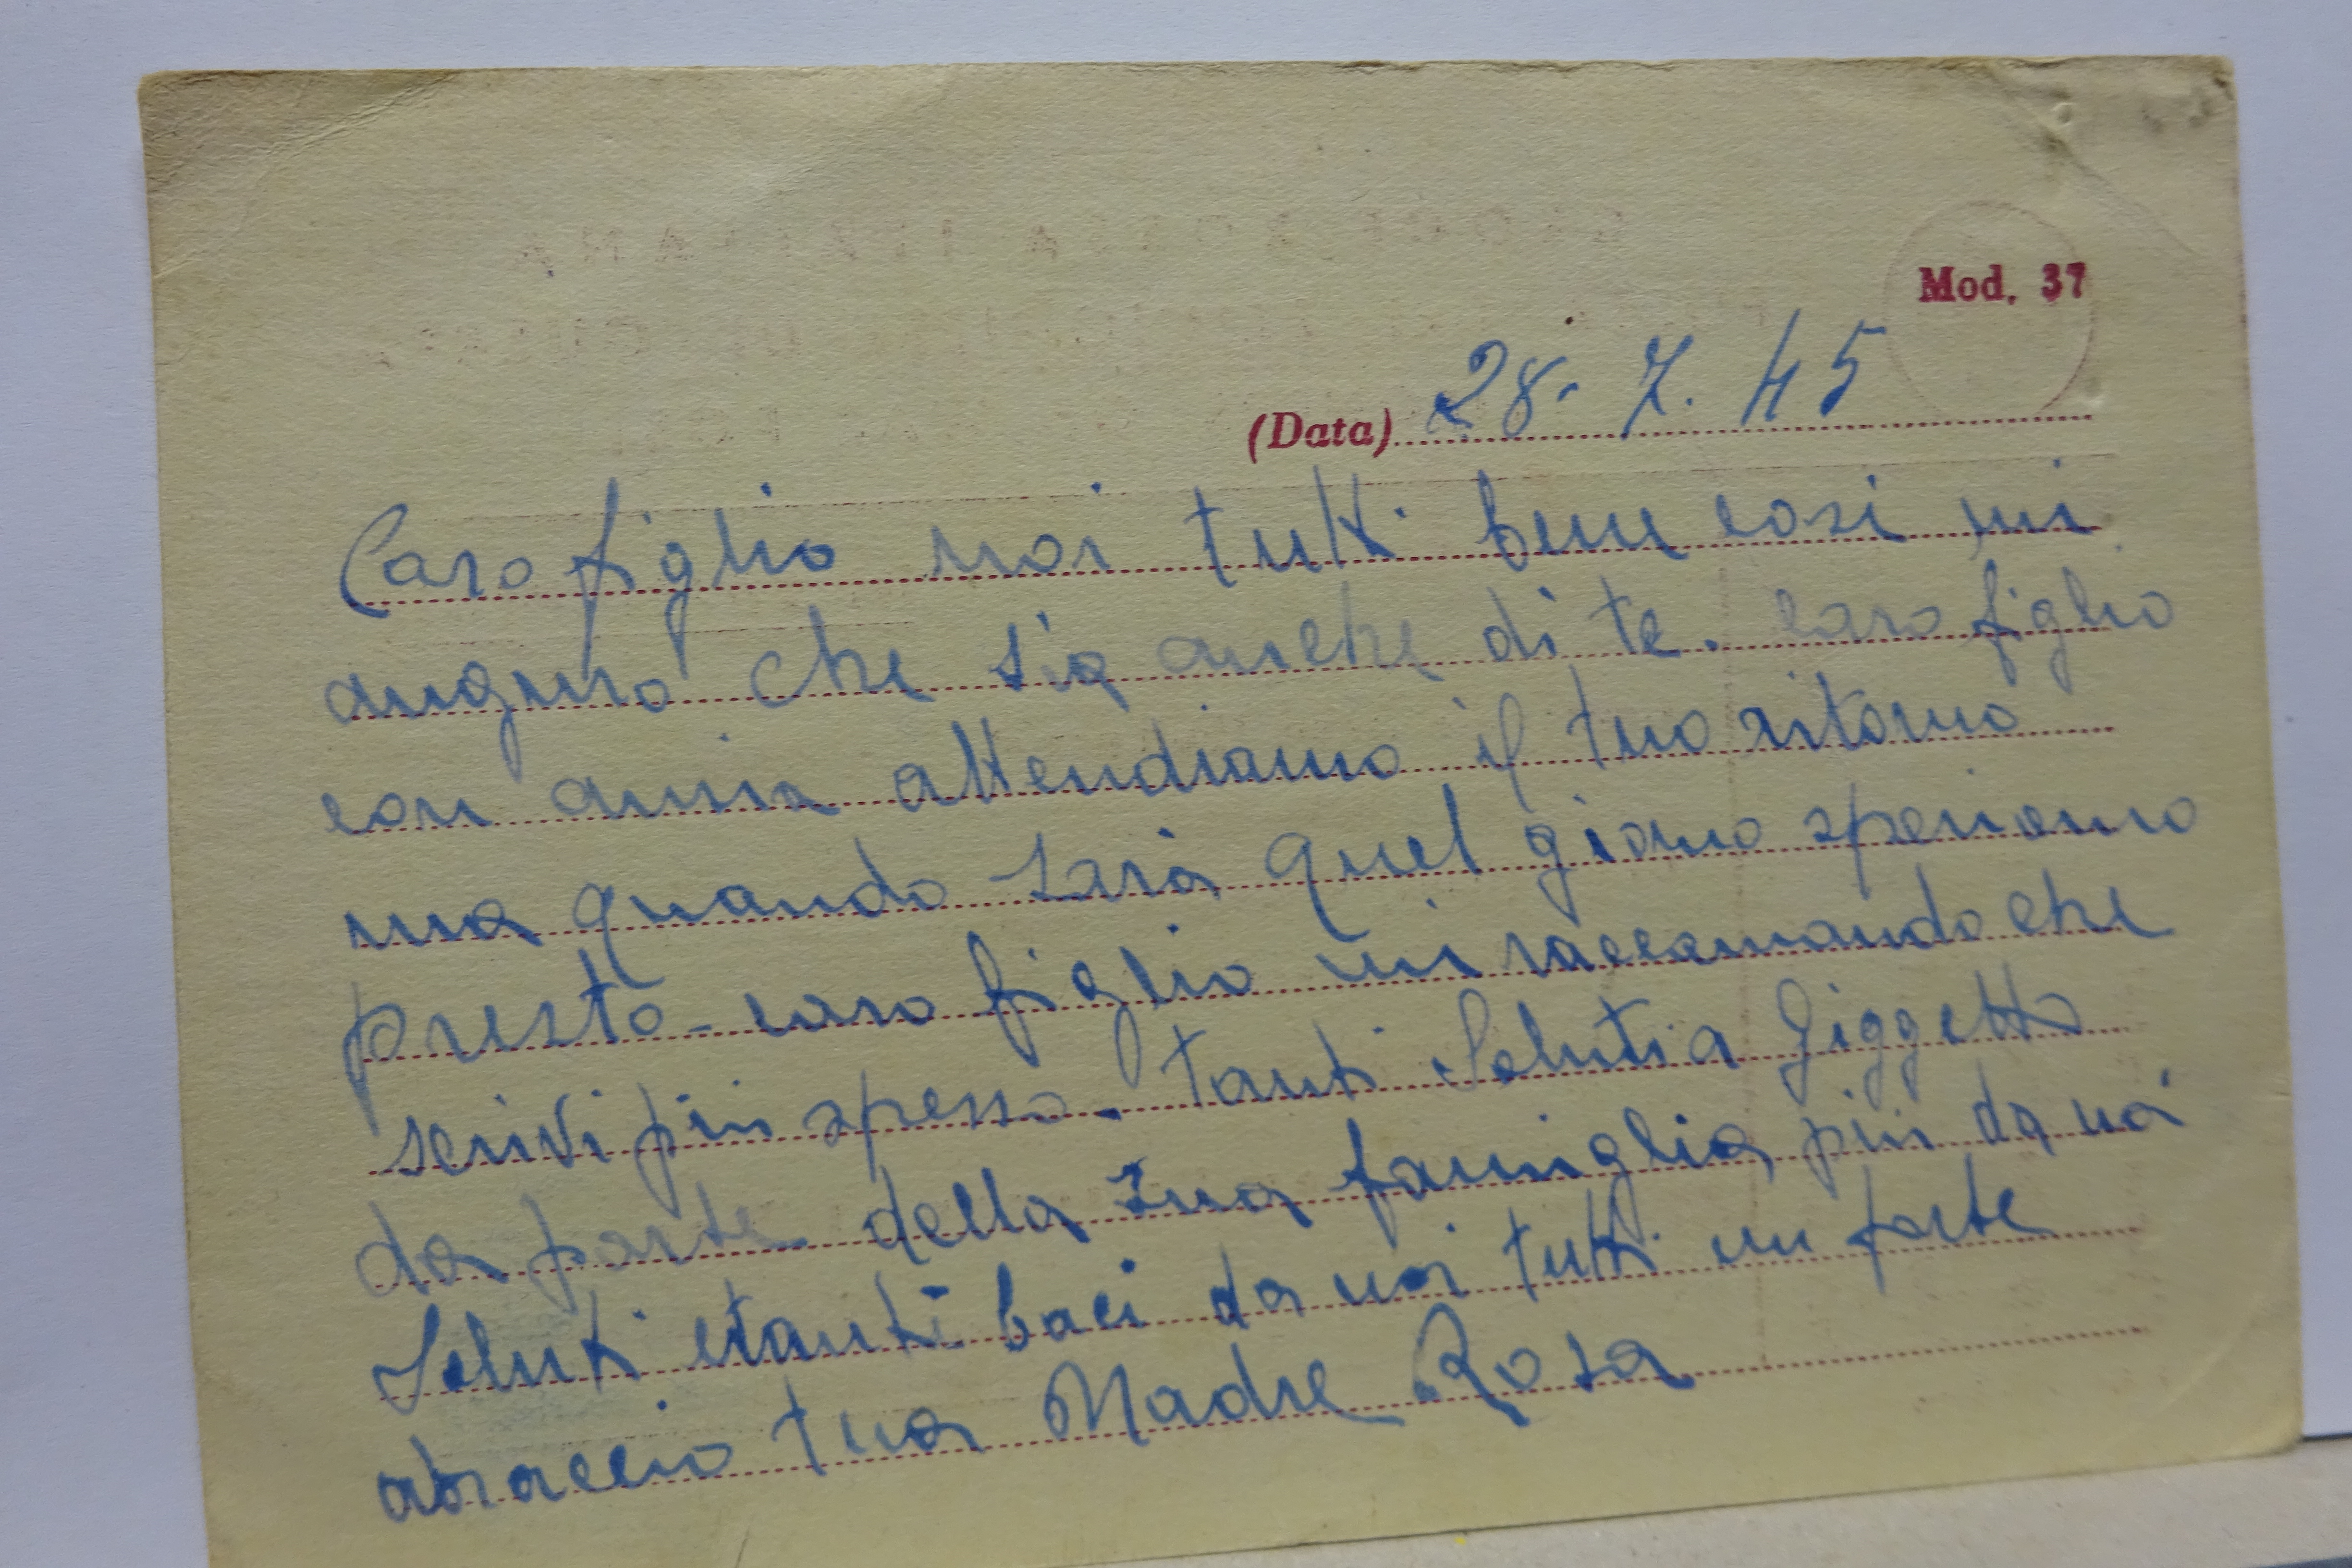 Mod. 37
(Data) 28. 7. 45
Caro figlio noi tutti bene cosi mi
auguro che sia anche di te. caro figlio
con ansia attendiamo il tuo ritorno
ma quando sarà quel giorno speriamo
presto - caro figlio mi raccomando che
scrivi più spesso. tanti Saluti a Giggetto
da parte della sua famiglia più da noi
Saluti e tanti baci da noi tutti un forte
abraccio tua Madre Rosa